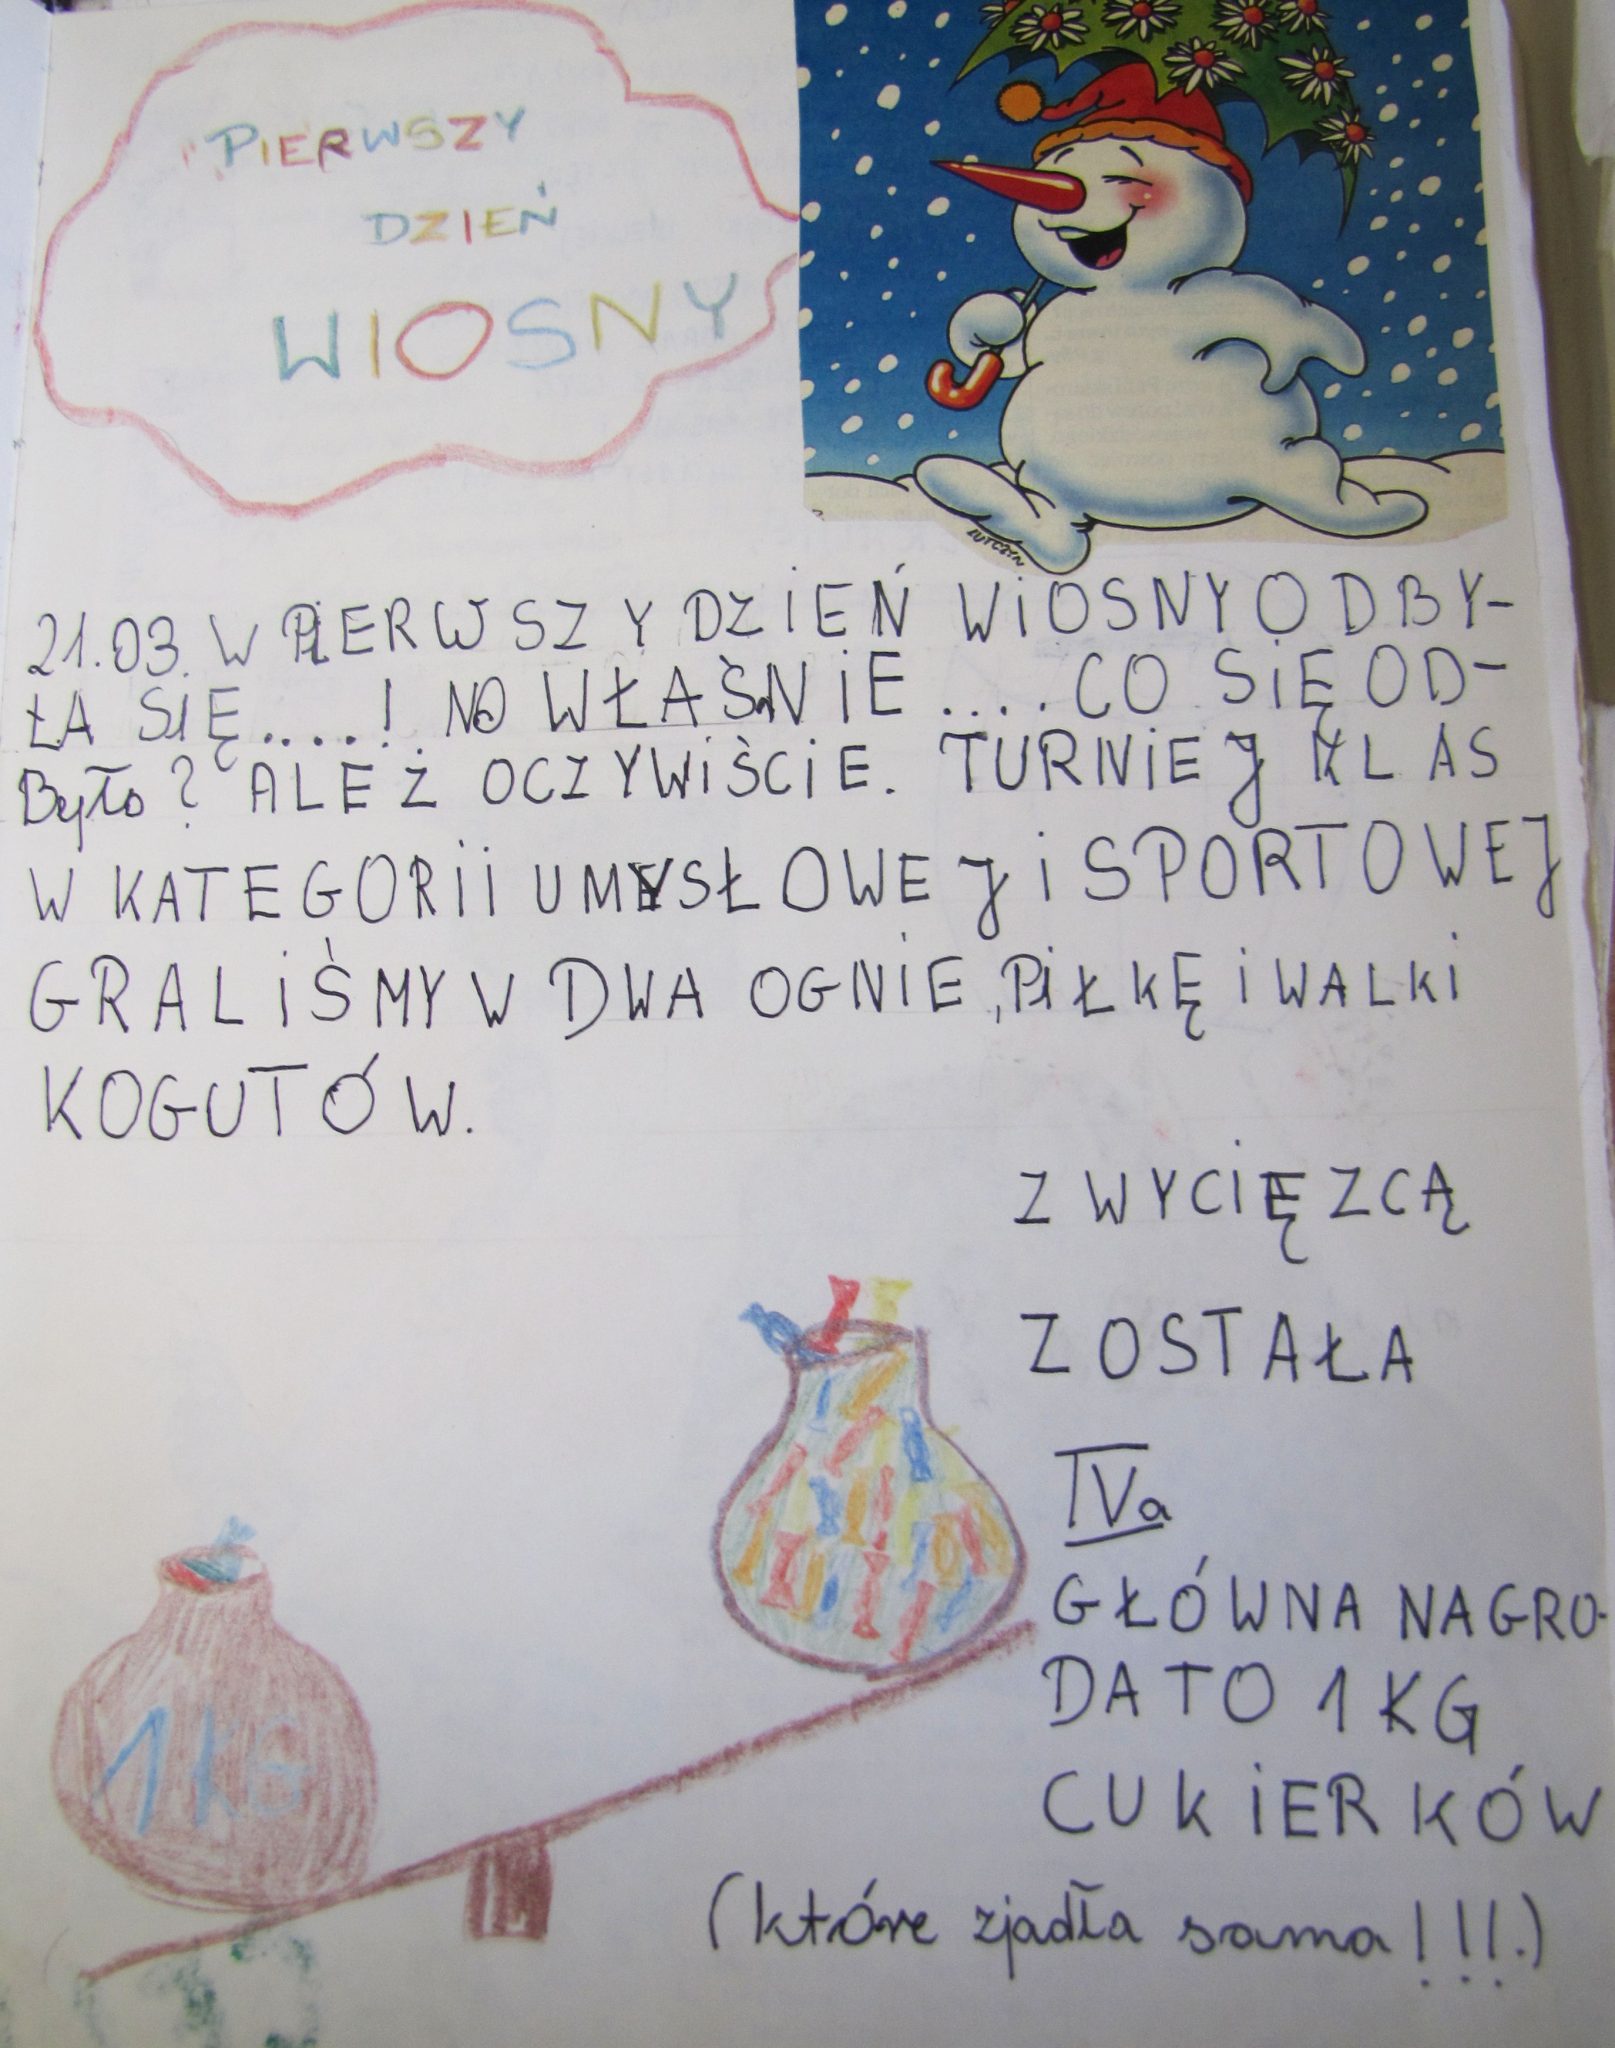 PIERWSZY
DZIEŃ
WIOSNY
LUTCZYN
21.03. W PIERWSZY DZIEŃ WIOSNY ODBY-
ŁA SIĘ....! NO WŁAŚNIE....CO SIĘ OD-
Było? ALEŻ OCZYWIŚCIE. TURNIEJ KLAS
W KATEGORII UMYSŁOWEJ I SPORTOWEJ
GRALIŚMY W DWA OGNIE, PIŁKĘ I WALKI
KOGUTÓW.
ZWYCIĘZCĄ
ZOSTAŁA
IVa
GŁÓWNA NAGRO-
DA TO 1 KG
CUKIERKÓW
(które zjadła sama!!!.)
1KG